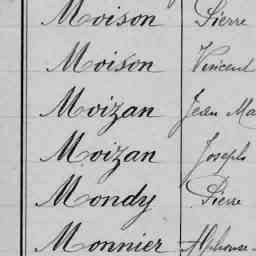 Moison Pierre
Moison Vincent
Moizan Jean Ma
Moizan Joseph
Mondy Pierre
Monnier Alphonse